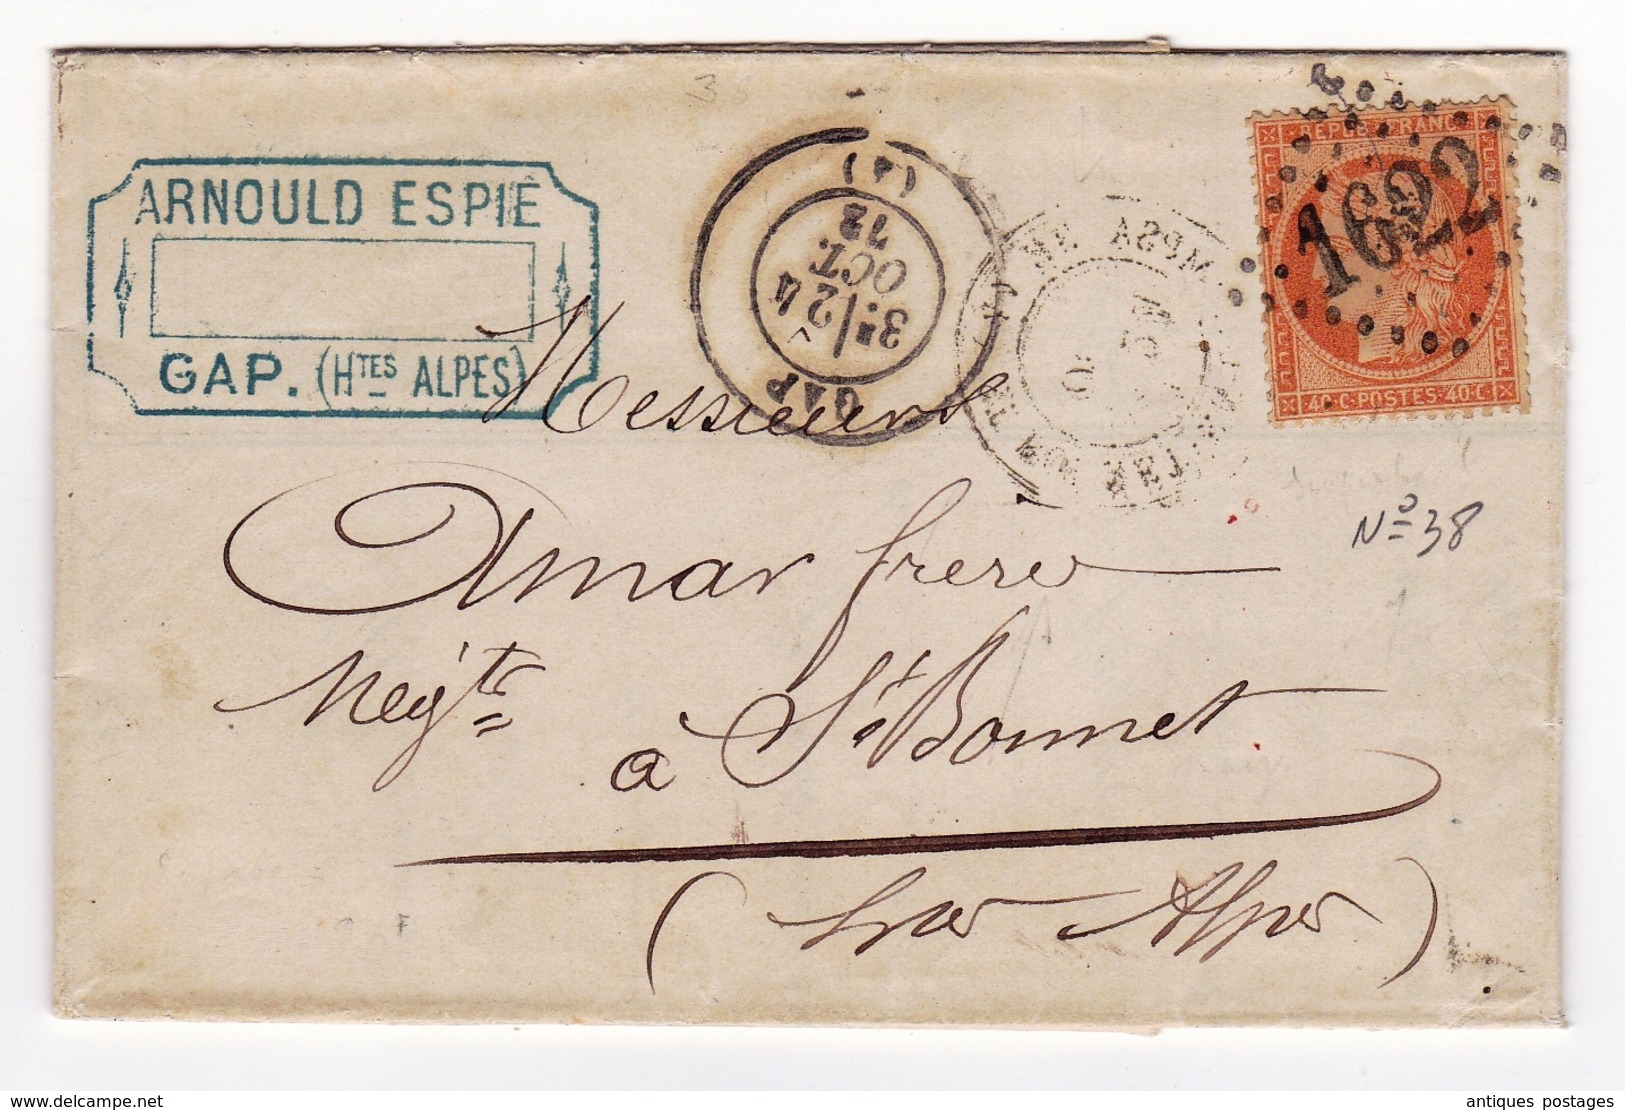 ARNOULD ESPIÉ
GAP. (HTES ALPES)
GAP
3E / 24
OCT.
72
(4)
REPUB FRANC
1622
40 C·POSTES·40 C
Messieurs
Amar frères
Négts
à St Bonnet
(Htes Alpes)
No 38
www.delcampe.net
antiques postages